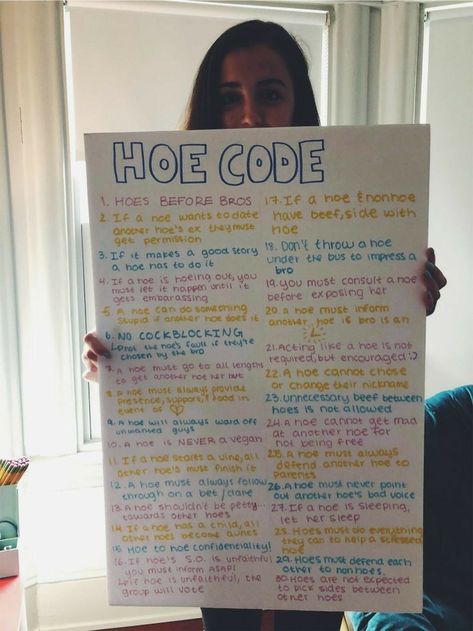 HOE CODE
1. HOES BEFORE BROS
2. If a hoe wants to date
another hoe's ex they must
get permission
3. If it makes a good story
a hoe has to do it
4. If a hoe is hoeing out, you
must let it happen until it
gets embarassing
5. A hoe can do something
stupid if another hoe does it
6. NO COCKBLOCKING
↳not the hoe's fault if they're
chosen by the bro
7. A hoe must go to all lengths
to get another hoe her nut
8. A hoe must always provide
presence, support, & food in
event of
9. A hoe will always ward off
unwanted guys
10. A hoe is NEVER a vegan
11. If a hoe starts a vine, all
other hoe's must finish it
12. A hoe must always follow
through on a bet / dare
13. A hoe shouldn't be petty...
towards other hoes
14. If a hoe has a child, all
other hoes become aunts
15. HOE to hoe confidenciality!
16. If hoe's S.O. is unfaithful
you must inform ASAP!
↳if hoe is unfaithful, the
group will vote
17. If a hoe & nonhoe
have beef, side with
hoe
18. Don't throw a hoe
under the bus to impress a
bro
19. you must consult a hoe
before exposing her
20. A hoe must inform
another hoe if bro is an
21. Acting like a hoe is not
required, but encouraged :)
22. A hoe cannot chose
or change their nickname
23. unnecessary beef between
hoes is not allowed
24. A hoe cannot get mad
at another hoe for
not being free
25. A hoe must always
defend another hoe to
parents
26. A hoe must never point
out another hoe's bad voice
27. If a hoe is sleeping,
let her sleep
28. Hoes must do everything
they can to help a stressed
hoe
29. Hoes must defend each
other to nonhoes.
30. Hoes are not expected
to pick sides between
other hoes